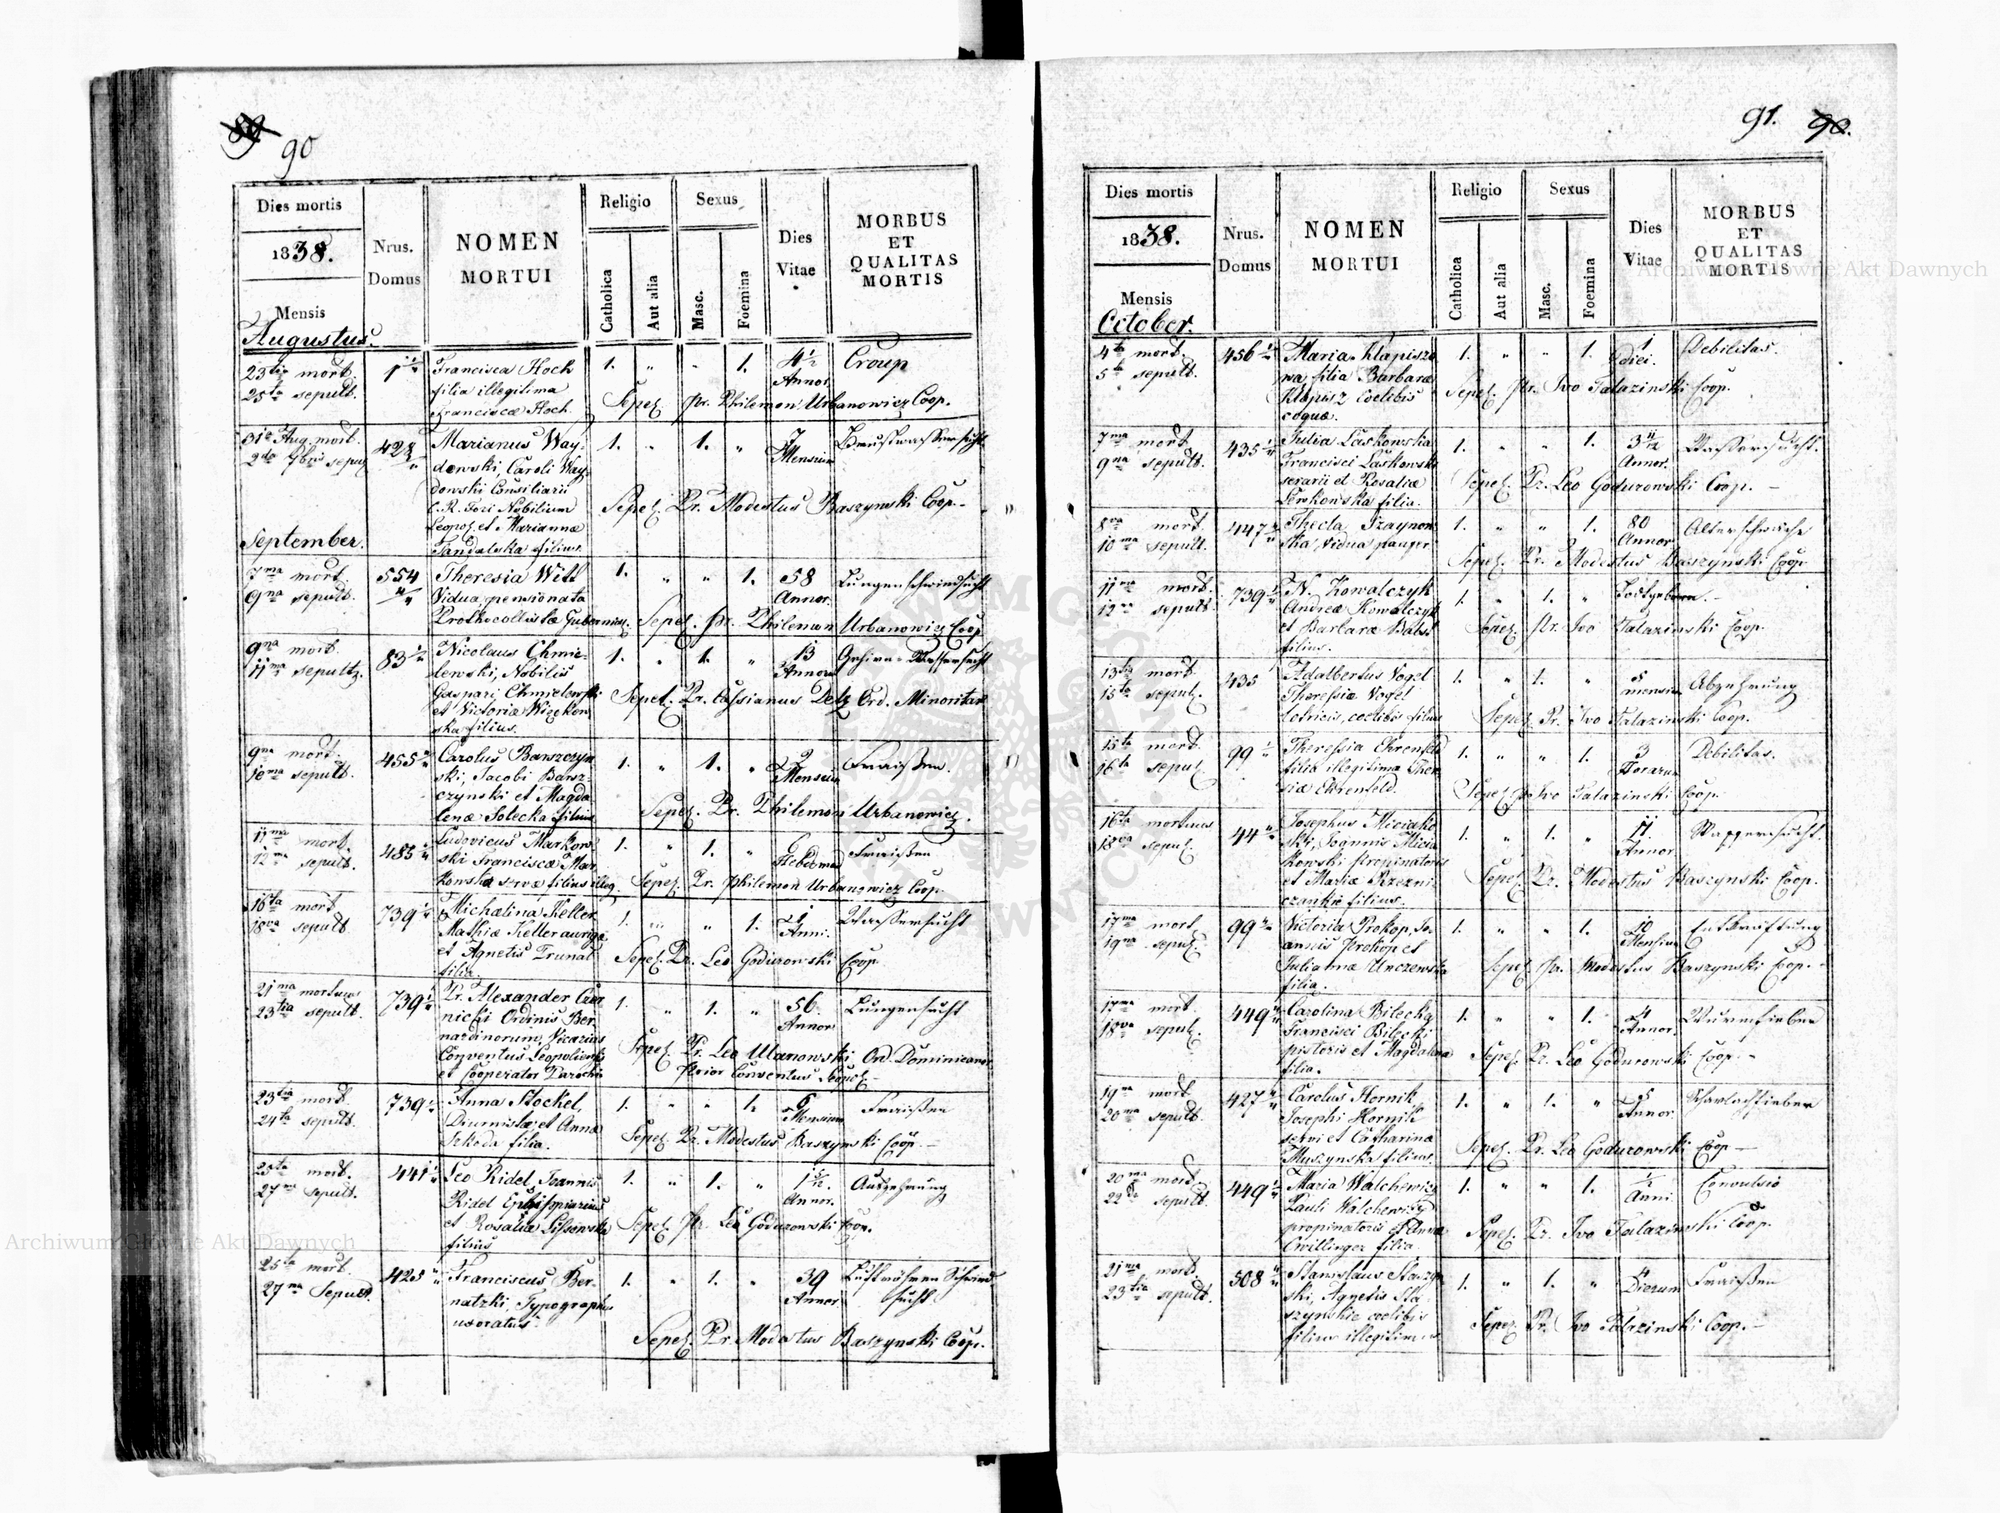 89 90
Dies mortis
1838.
Mensis
Augustus.
Nrus.
Domus
NOMEN
MORTUI
Religio
Catholica
Aut alia
Sexus
Masc.
Foemina
Dies
Vitae
MORBUS
ET
QUALITAS
MORTIS
23tia mort.
25ta sepult.
Francisca Hoch
filia illegitima
Franciscæ Hoch.
1. " " 1.
4½
Annor.
Croup
Sepel. Pr. Philemon Urbanowicz Coop.
31a Aug. mort.
2da 7bris sepul.
Marianus Way-
dowski, Caroli Way-
dowski Consiliarii
C. R. Fori Nobilium
Leopol. et Mariannæ
Tandalska filius.
1. " 1. "
7
Mensium
Brustwassersucht
Sepel. Pr. Modestus Baszynski Coop.
September.
7ma mort.
9na sepult.
554
Theresia Witt
Vidua pensionata
Prothocollistæ Gubernii.
1. " " 1.
58
Annor.
Lungenschwindsucht
Sepel. Pr. Philemon Urbanowicz Coop.
9na mort.
11ma sepult.
83
Nicolaus Chmie-
lewski, Nobilis
Gaspari Chmielewski
et Victoriæ
filius.
1. " 1. "
13
Annor.
Gehirn-Wassersucht
Sepel. Pr. Cassianus Ord. Minoritar.
9na mort.
10ma sepult.
455
Carolus Barszczyn-
ski, Jacobi Barsz-
czynski et Magda-
lenæ Solecka filius.
1. " 1. "
2
Mensium
Fraißen.
Sepel. Pr. Philemon Urbanowicz.
11ma mort.
12ma sepult.
485
Ludovicus Markow-
ski Franciscæ Mar-
kowska servæ filius illeg.
1. " 1. "
6
Hebdomad.
Fraißen
Sepel. Pr. Philemon Urbanowicz Coop.
16ta mort.
18va sepult.
739
Michalina Keller
Mathiæ Keller aurigæ
et Agnetis Trunat
filia.
1. " " 1.
1
Anni.
Wassersucht
Sepel. Pr. Leo Godurowski Coop.
21ma mortuus
23tia sepult.
739
Pr. Alexander
nicki Ordinis Ber-
nardinorum, Vicarius
Conventus Leopoliensis
et Cooperator Parochiæ
1. " 1. "
56
Annor.
Lungensucht
Sepel. Pr. Leo Ulanowski Ord. Dominicanor.
Prior Conventus Leopol.
23tia mort.
24ta sepult.
739
Anna Stockel,
Diurnistæ et Annæ
Szkoda filia.
1. " " 1.
6
Mensium
Fraißen
Sepel. Pr. Modestus Baszynski Coop.
25ta mort.
27ma sepult.
441
Leo Ridel Joannis
Ridel
et Rosaliæ
filius
1. " 1. "
Annor.
Auszehrung
Sepel. Pr. Leo Godurowski Coop.
25ta mort.
27ma Sepult.
425
Franciscus Ber-
natzki, Typographus
uxoratus.
1. " 1. "
39
Annor.
Luftröhren Schwind-
sucht
Sepel. Pr. Modestus Baszynski Coop.
91. 90.
Dies mortis
1838.
Mensis
October.
Nrus.
Domus
NOMEN
MORTUI
Religio
Catholica
Aut alia
Sexus
Masc.
Foemina
Dies
Vitae
MORBUS
ET
QUALITAS
MORTIS
4ta mort.
5ta sepult.
456
Maria Klapiszo-
wa filia Barbaræ
Klapisz coelibis
coquæ.
1. " " 1.
1
diei.
Debilitas.
Sepel. Pr. Ivo Talazinski Coop.
7ma mort.
9na sepult.
435
Julia Laskowska
Francisci Laskowski
serarii et Rosaliæ
filia.
1. " " 1.
Annor.
Wassersucht.
Sepel. Pr. Leo Godurowski Coop.
8va mort.
10ma sepult.
447
Thecla
Vidua pauper
1. " " 1.
80
Annor.
Altersschwäche
Sepel. Pr. Modestus Baszynski Coop.
11ma mort.
12ma sepult.
739
N. Kowalczyk
Andreæ Kowalczyk
et Barbaræ
filius.
1. " 1. "
Todtgeboren.
Sepel. Pr. Ivo Talazinski Coop.
13tia mort.
15ta sepul.
435
Adalbertus Vogel
Theressiæ Vogel
Lotricis, coelibis filius
1. " 1. "
mensium
Abzehrung
Sepel. Pr. Ivo Talazinski Coop.
15ta mort.
16ta sepul.
99
Theressia Ehrenfeld
filia illegitima There-
siæ Ehrenfeld.
1. " " 1.
3
Horarum
Debilitas.
Sepel. Pr. Ivo Talazinski Coop.
16ta mortuus
18va sepul.
44
Josephus Miciako-
ski, Joannis Micia-
kowski propinatoris
et Mariæ
filius.
1. " 1. "
Annor.
Wassersucht.
Sepel. Pr. Modestus Baszynski Coop.
17ma mort.
19na sepul.
99
Victoria Prokop, Jo-
annis Prokop et
Juliannæ Unczewska
filia.
1. " " 1.
10
Mensium
Entkräftung
Sepel. Pr. Modestus Baszynski Coop.
17ma mort.
18va sepul.
449
Carolina Bilecka
Francisci Bilecki
pistoris et Magdalenæ
filia.
1. " " 1.
4
Annor.
Wurmfieber
Sepel. Pr. Leo Godurowski Coop.
19na mort.
20ma sepult.
427
Carolus Hornik
Josephi Hornik
servi et Catharinæ
Muszynska filius.
1. " 1. "
5
Annor.
Scharlachfieber
Sepel. Pr. Leo Godurowski Coop.
20ma mort.
22da sepult.
449
Maria Walchewicz
Pauli Walchewicz
propinatoris et Annæ
Cwillinger filia.
1. " " 1.
½
Anni.
Convulsio
Sepel. Pr. Ivo Talazinski Coop.
21ma mort.
23tia sepult.
508
Stanislaus Staszyn-
ski, Agnetis Sta-
szynskiæ coelibis
filius illegitimus
1. " 1. "
4
Dierum
Fraißen
Sepel. Pr. Ivo Talazinski Coop.
Archiwum Główne Akt Dawnych
Archiwum Główne Akt Dawnych